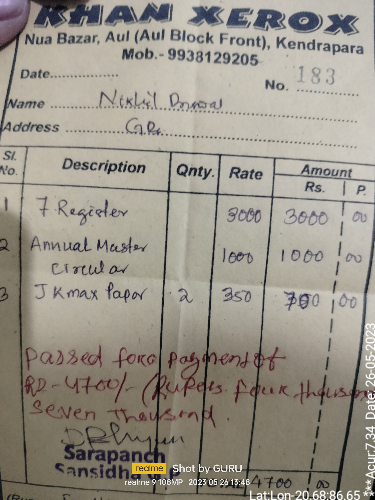 KHAN XEROX
Nua Bazar, Aul (Aul Block Front), Kendrapara
Mob.- 9938129205
Date............
No. 183
Name
Address
Sl. No. Description Qnty. Rate Amount
Rs. P.
1 7 Register 3000 3000 00
2 Annual Master 1000 1000 00
circular
3 J Kmax Papar 2 350 700 00
Passed for payment of
RD-4700/- (Rupees four thousan
Seven Thousand.
Sarapanch
Sansidha G.P
4700 00
realme Shot by GURU
realme 9 108MP 2023 05 26 13:48
Lat:Lon-20.68:86.65***Acur7.34 Date:26-05-2023